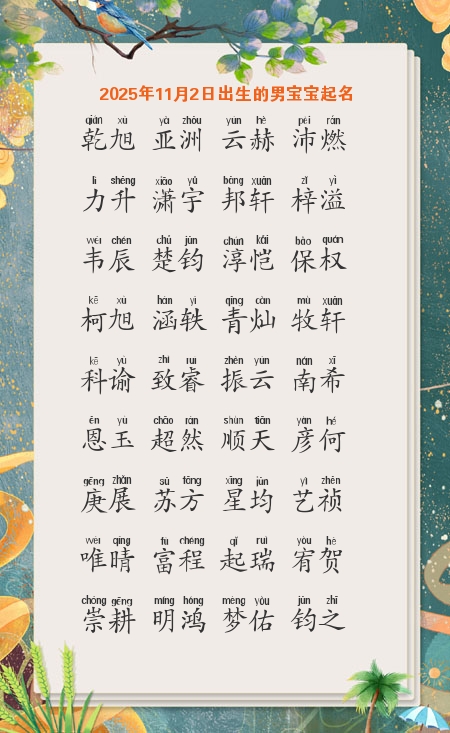 2025年11月2日出生的男宝宝起名
qián xù yà zhōu yún hè pèi rán
乾旭 亚洲 云赫 沛燃
lì shēng xiāo yǔ bāng xuān zǐ yì
力升 潇宇 邦轩 梓溢
wéi chén chǔ jūn chún kǎi bǎo quán
韦辰 楚钧 淳恺 保权
kē xù hán yì qīng càn mù xuān
柯旭 涵轶 青灿 牧轩
kē yú zhì ruì zhèn yún nán xī
科谕 致睿 振云 南希
ēn yù chāo rán shùn tiān yàn hé
恩玉 超然 顺天 彦何
gēng zhǎn sū fāng xīng jūn yì zhēn
庚展 苏方 星均 艺祯
wéi qíng fù chéng qǐ ruì yòu hè
唯晴 富程 起瑞 宥贺
chóng gēng míng hóng mèng yòu jūn zhī
崇耕 明鸿 梦佑 钧之